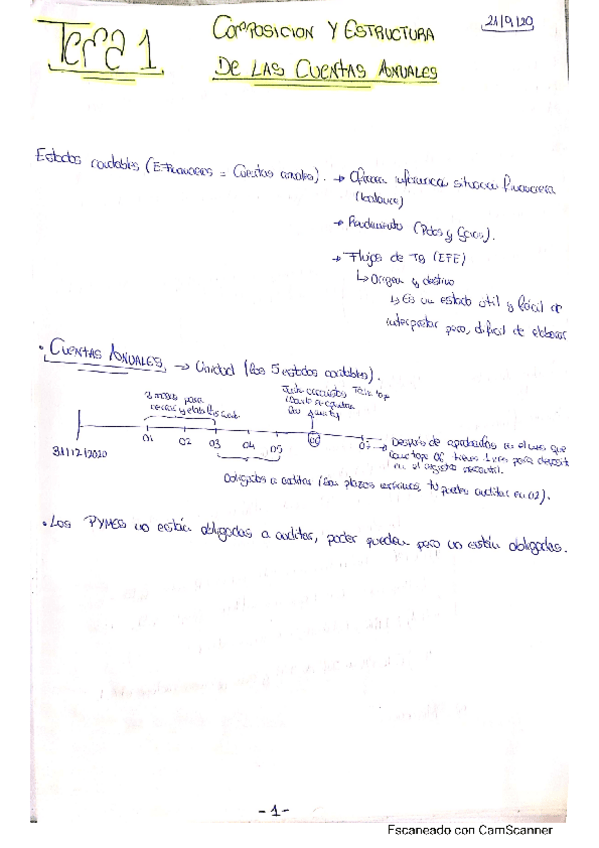 Tema 1
COMPOSICION Y ESTRUCTURA
DE LAS CUENTAS ANUALES
21/9/20
Estados contables (E. Financieros = Cuentas anuales). → Ofrecen información situación financiera
(balance)
→ Rendimiento (Pdas y Gcias).
→ Flujos de Tª (EFE)
↳ Origen y destino
↳ Es un estado útil y fácil de
interpretar pero, difícil de elaborar
• CUENTAS ANUALES → Unidad (los 5 estados contables).
3 meses para
31/12/2020
01
02
03
04
05
06
07
→ Después de aprobarlas en el mes que
como tope 06 tienes 1 mes para deposit
en el registro mercantil.
Obligados a auditar (Son plazos máximos, tú puedes auditar en 02).
• Las PYMES no están obligadas a auditar, poder pueden pero no están obligadas.
- 1 -
Escaneado con CamScanner